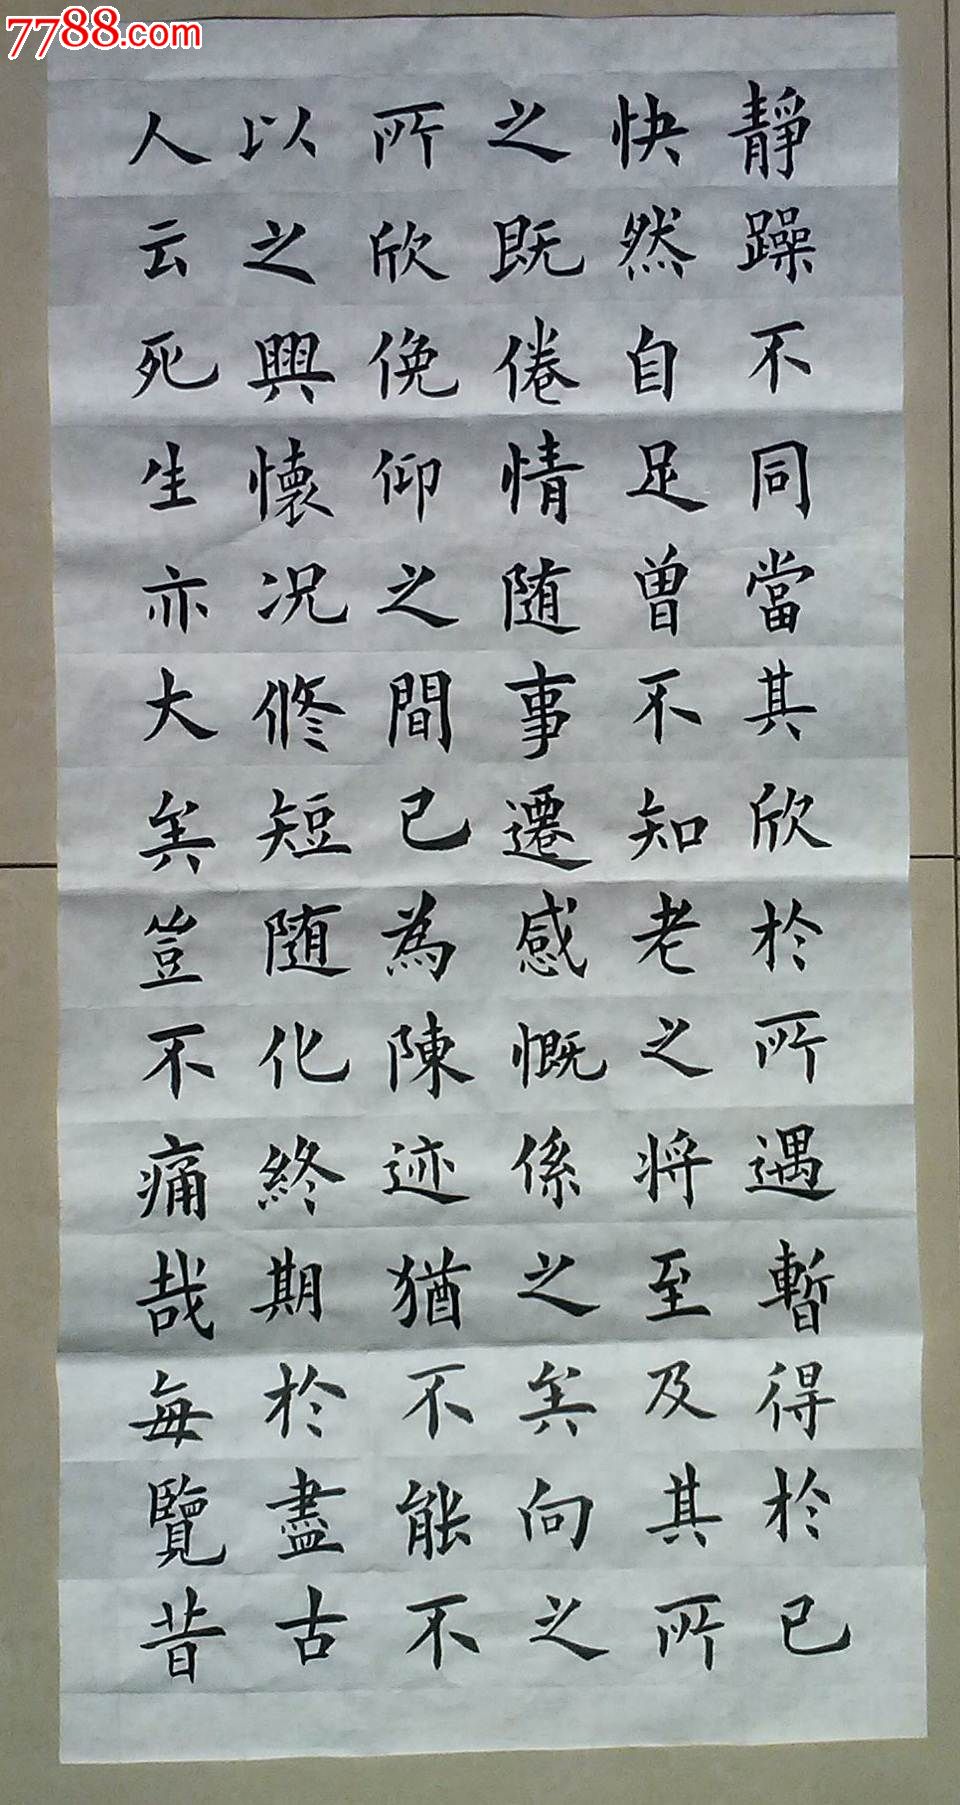 7788.com
靜躁不同當其欣於所遇暫得於已
快然自足曾不知老之将至及其所
之既倦情随事遷感慨係之矣向之
所欣俛仰之間已為陳迹猶不能不
以之興懷况脩短随化終期於盡古
人云死生亦大矣豈不痛哉每覽昔